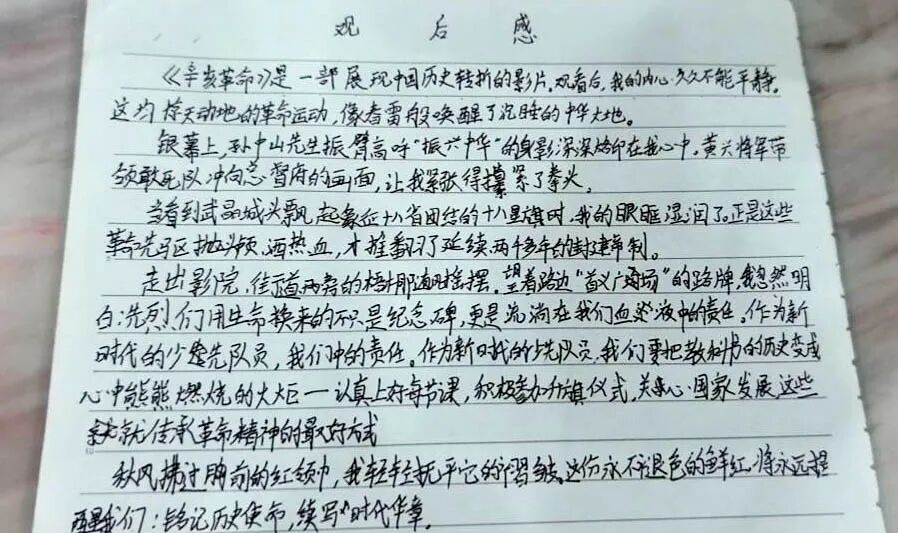 观后感
《辛亥革命》是一部展现中国历史转折的影片。观看后,我的内心久久不能平静。
这场惊天动地的革命运动,像春雷般唤醒了沉睡的中华大地。
银幕上,孙中山先生振臂高呼"振兴中华"的身影深深烙印在我心中。黄兴将军带
领敢死队冲向总督府的画面,让我紧张得攥紧了拳头。
当看到武昌城头飘起象征十八省团结的十八星旗时,我的眼眶湿润了。正是这些
革命先驱抛头颅、洒热血,才推翻了延续两千多年的封建帝制。
走出影院,街道两旁的梧桐随风摇摆。望着路边"首义广场"的路牌,我忽然明
白:先烈们用生命换来的不只是纪念碑,更是流淌在我们血液中的责任。作为新
时代的少先队员,我们中的责任。作为新时代的少先队员,我们要把教科书的历史变成
心中熊熊燃烧的火炬一认真上好每节课,积极参加升旗仪式,关心国家发展这些
就传承革命精神的最好方式
秋风拂过胸前的红领巾,我轻轻抚平它的褶皱。这份永不退色的鲜红,将永远提
醒我们:铭记历史使命,续写时代华章。